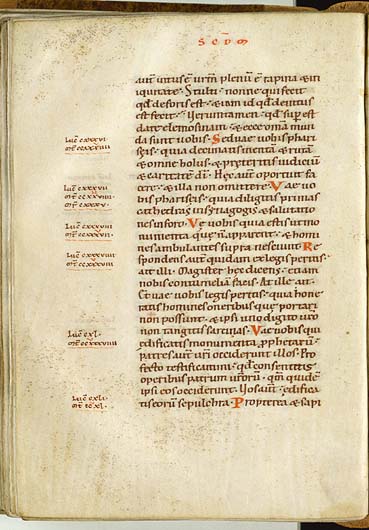 S C D M
aut intus ē urm̄ plenū ē rapina & in
iquitate · Stulti · nonne qui fecit
qd̄ deforis est · & iam id qd̄ deintus
est fecit · Verumtamen · qd̄ sup̄ est
date elemosinam · & ecce omnia mun
da sunt uobis · Sed uae uobis phari
seis · quia decimatis mentā & rutā
& omne holus · & preteritis iudiciū
& caritatē dī · Hęc aut̄ oportuit fa
cere · & illa non omittere · Vae uo
bis phariseis · quia diligitis primas
cathedras in synagogis & salutatio
nes in foro · Vę uobis quia estis ut mo
numenta quę n̄ apparent · & homi
nes ambulantes supra nesciunt · Re
spondens aut̄ quidam ex legis peritis ·
ait illi · Magister hęc dicens · etiam
nobis contumeliā facis · At ille ait ·
Et uae uobis legis peritis · quia hone
ratis homines oneribus quę portari
non possunt · & ipsi uno digito uro
non tangitis sarcinas · Vae uobis qui
edificatis monumenta prophetarū ·
patres aut̄ uri occiderunt illos · Pro
fecto testificamini · qd̄ consentitis
operibus patrum urorū · qm̄ quidē
ipsi eos occiderunt · Uos aut̄ · edifica
tis eorū sepulchra · Propterea & sapi